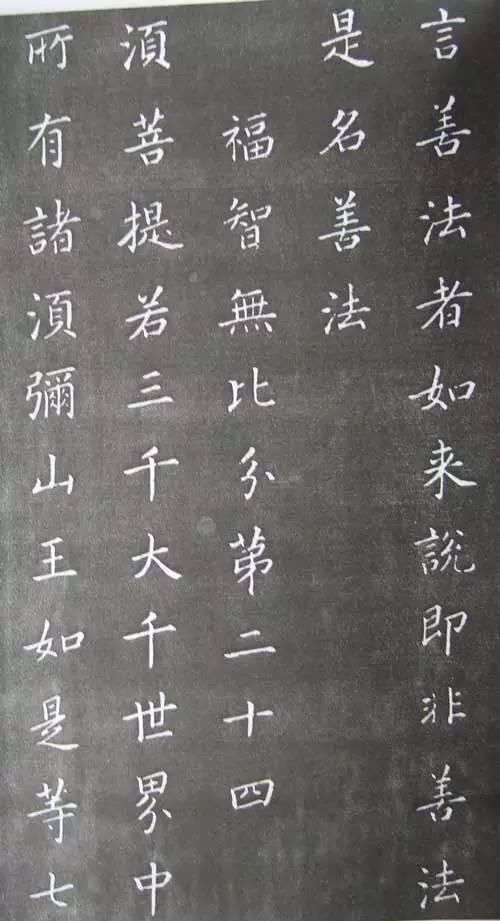 言善法者如来說即非善法
是名善法
福智無比分第二十四
須菩提若三千大千世界中
所有諸須彌山王如是等七